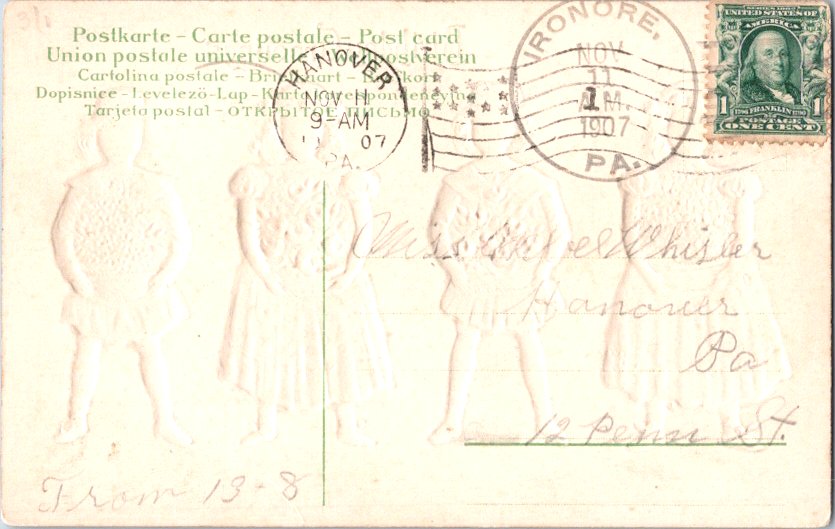 3/1
Postkarte – Carte postale – Post card
Union postale universelle
Cartolina postale –
Dopisnice – Levelező-Lap –
Tarjeta postal –
HANOVER
NOV 11
9-AM
07
PA.
IRONORE,
NOV
11
A.M.
1
1907
PA.
SERIES 1902
UNITED STATES OF
AMERICA
1 FRANKLIN 1
POSTAGE
ONE CENT
Miss Whisler
Hanover
Pa
12 Penn St.
From 13-8